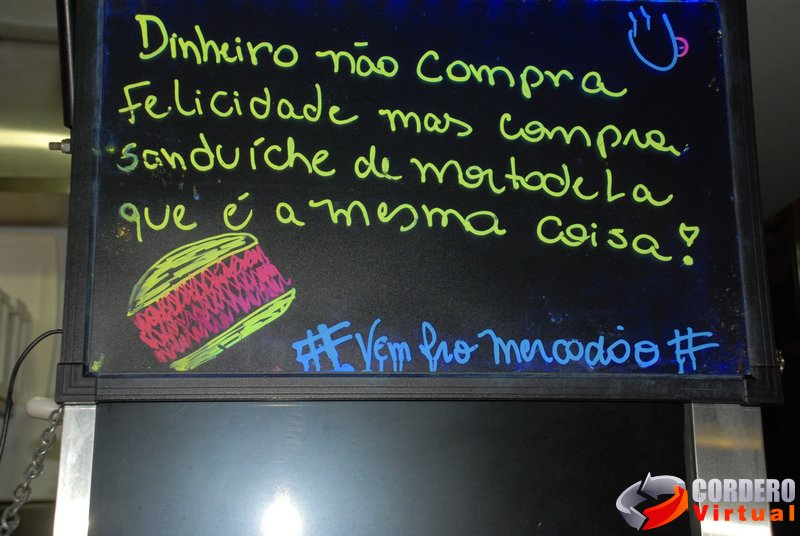 Dinheiro não compra
Felicidade mas compra
sanduíche de mortadela
que é a mesma coisa!
#Vem pro mercadão#
CORDERO
Virtual